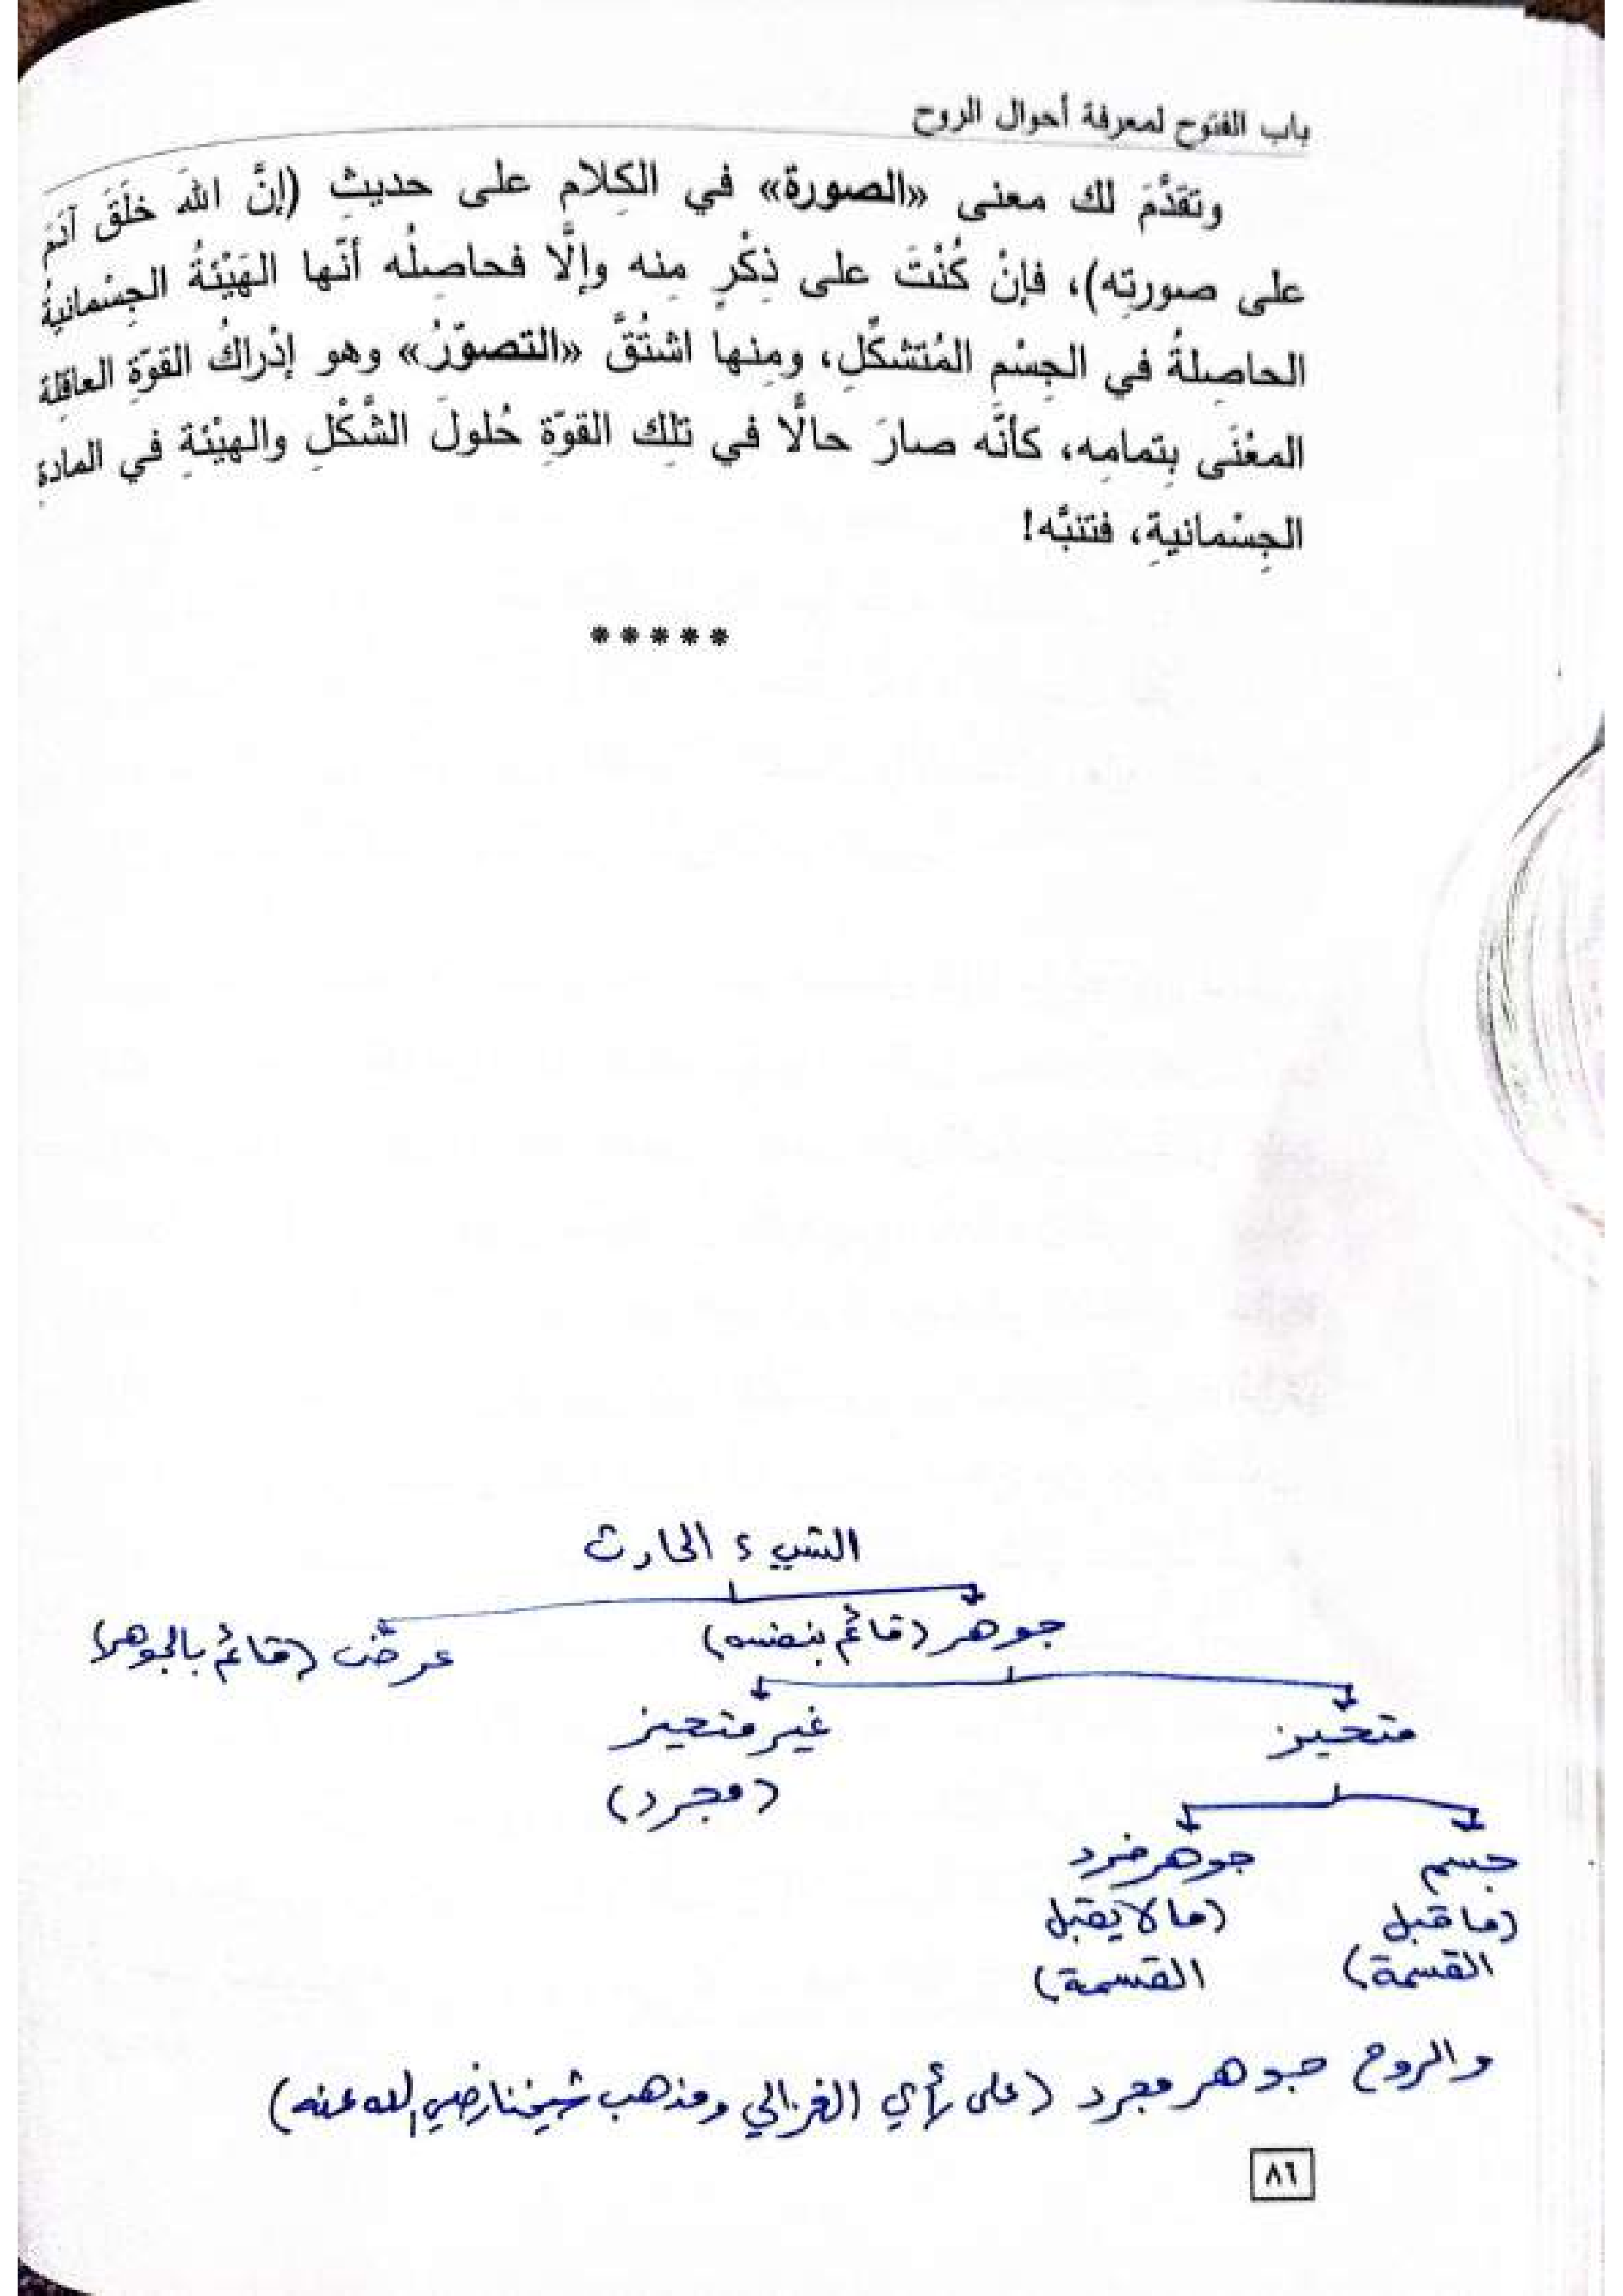 باب الفتوح لمعرفة أحوال الروح
وتقدَّمَ لك معنى «الصورة» في الكِلام على حديثِ (إنَّ اللهَ خلَقَ آدَمَ
على صورتِه)، فإنْ كُنْتَ على ذِكْرٍ مِنه وإلَّا فحاصِلُه أنّها الهَيْئةُ الجِسْمانيةُ
الحاصِلةُ في الجِسْمِ المُتشكِّلِ، ومِنها اشتُقَّ «التصوّرُ» وهو إدْراكُ القوّةِ العاقِلةِ
المعْنَى بِتمامِه، كأنَّه صارَ حالًّا في تلِك القوّةِ حُلولَ الشَّكْلِ والهيْئةِ في المادةِ
الجِسْمانيةِ، فتنبَّه!
*****
الشيء الحادث
جوهر (قائم بنفسه) عرض (قائم بالجوهر)
متحيز غير متحيز
(مجرد)
جسم جوهر فرد
(ما قبل (ما لا يقبل
القسمة) القسمة)
والروح جوهر مجرد (على رأي الغزالي ومذهب شيخنا رضي الله عنه)
٨٦